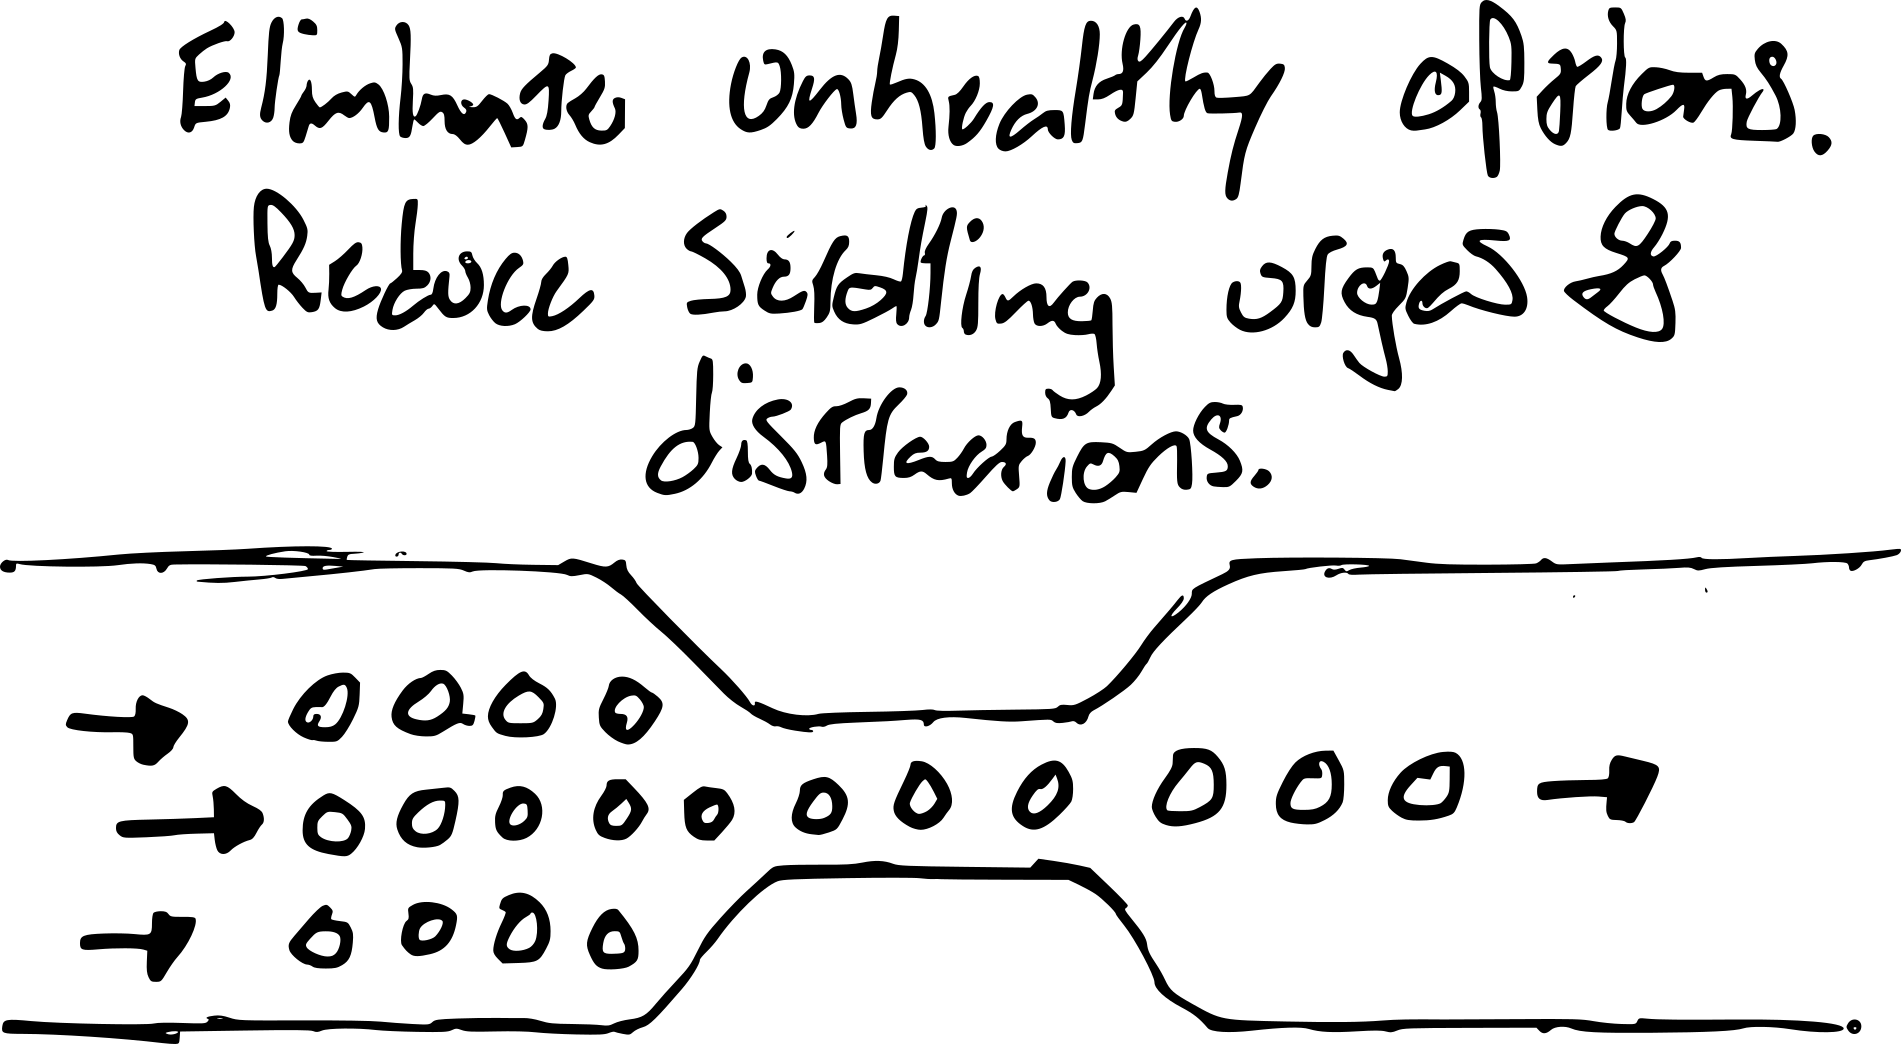 Eliminate unhealthy options.
Reduce scrolling urges &
distractions.